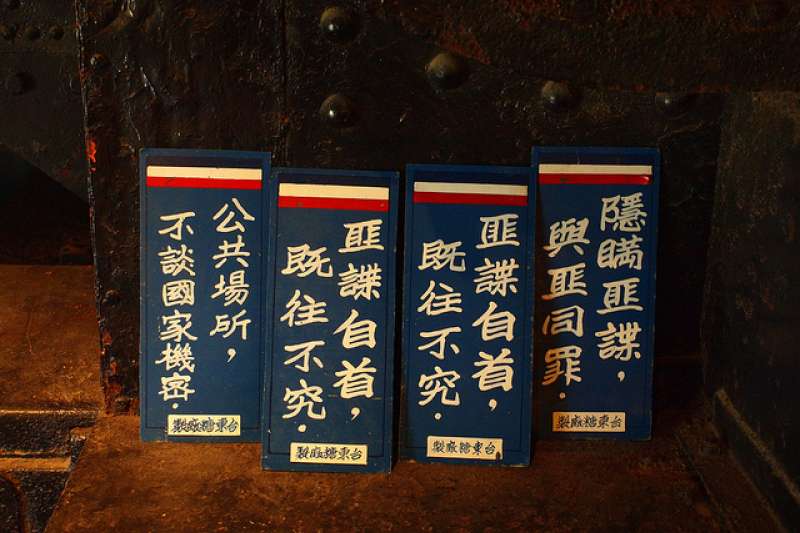 公共場所，
不談國家機密．
台東糖廠製
匪諜自首，
既往不究．
台東糖廠製
匪諜自首，
既往不究．
台東糖廠製
隱瞞匪諜，
與匪同罪．
台東糖廠製